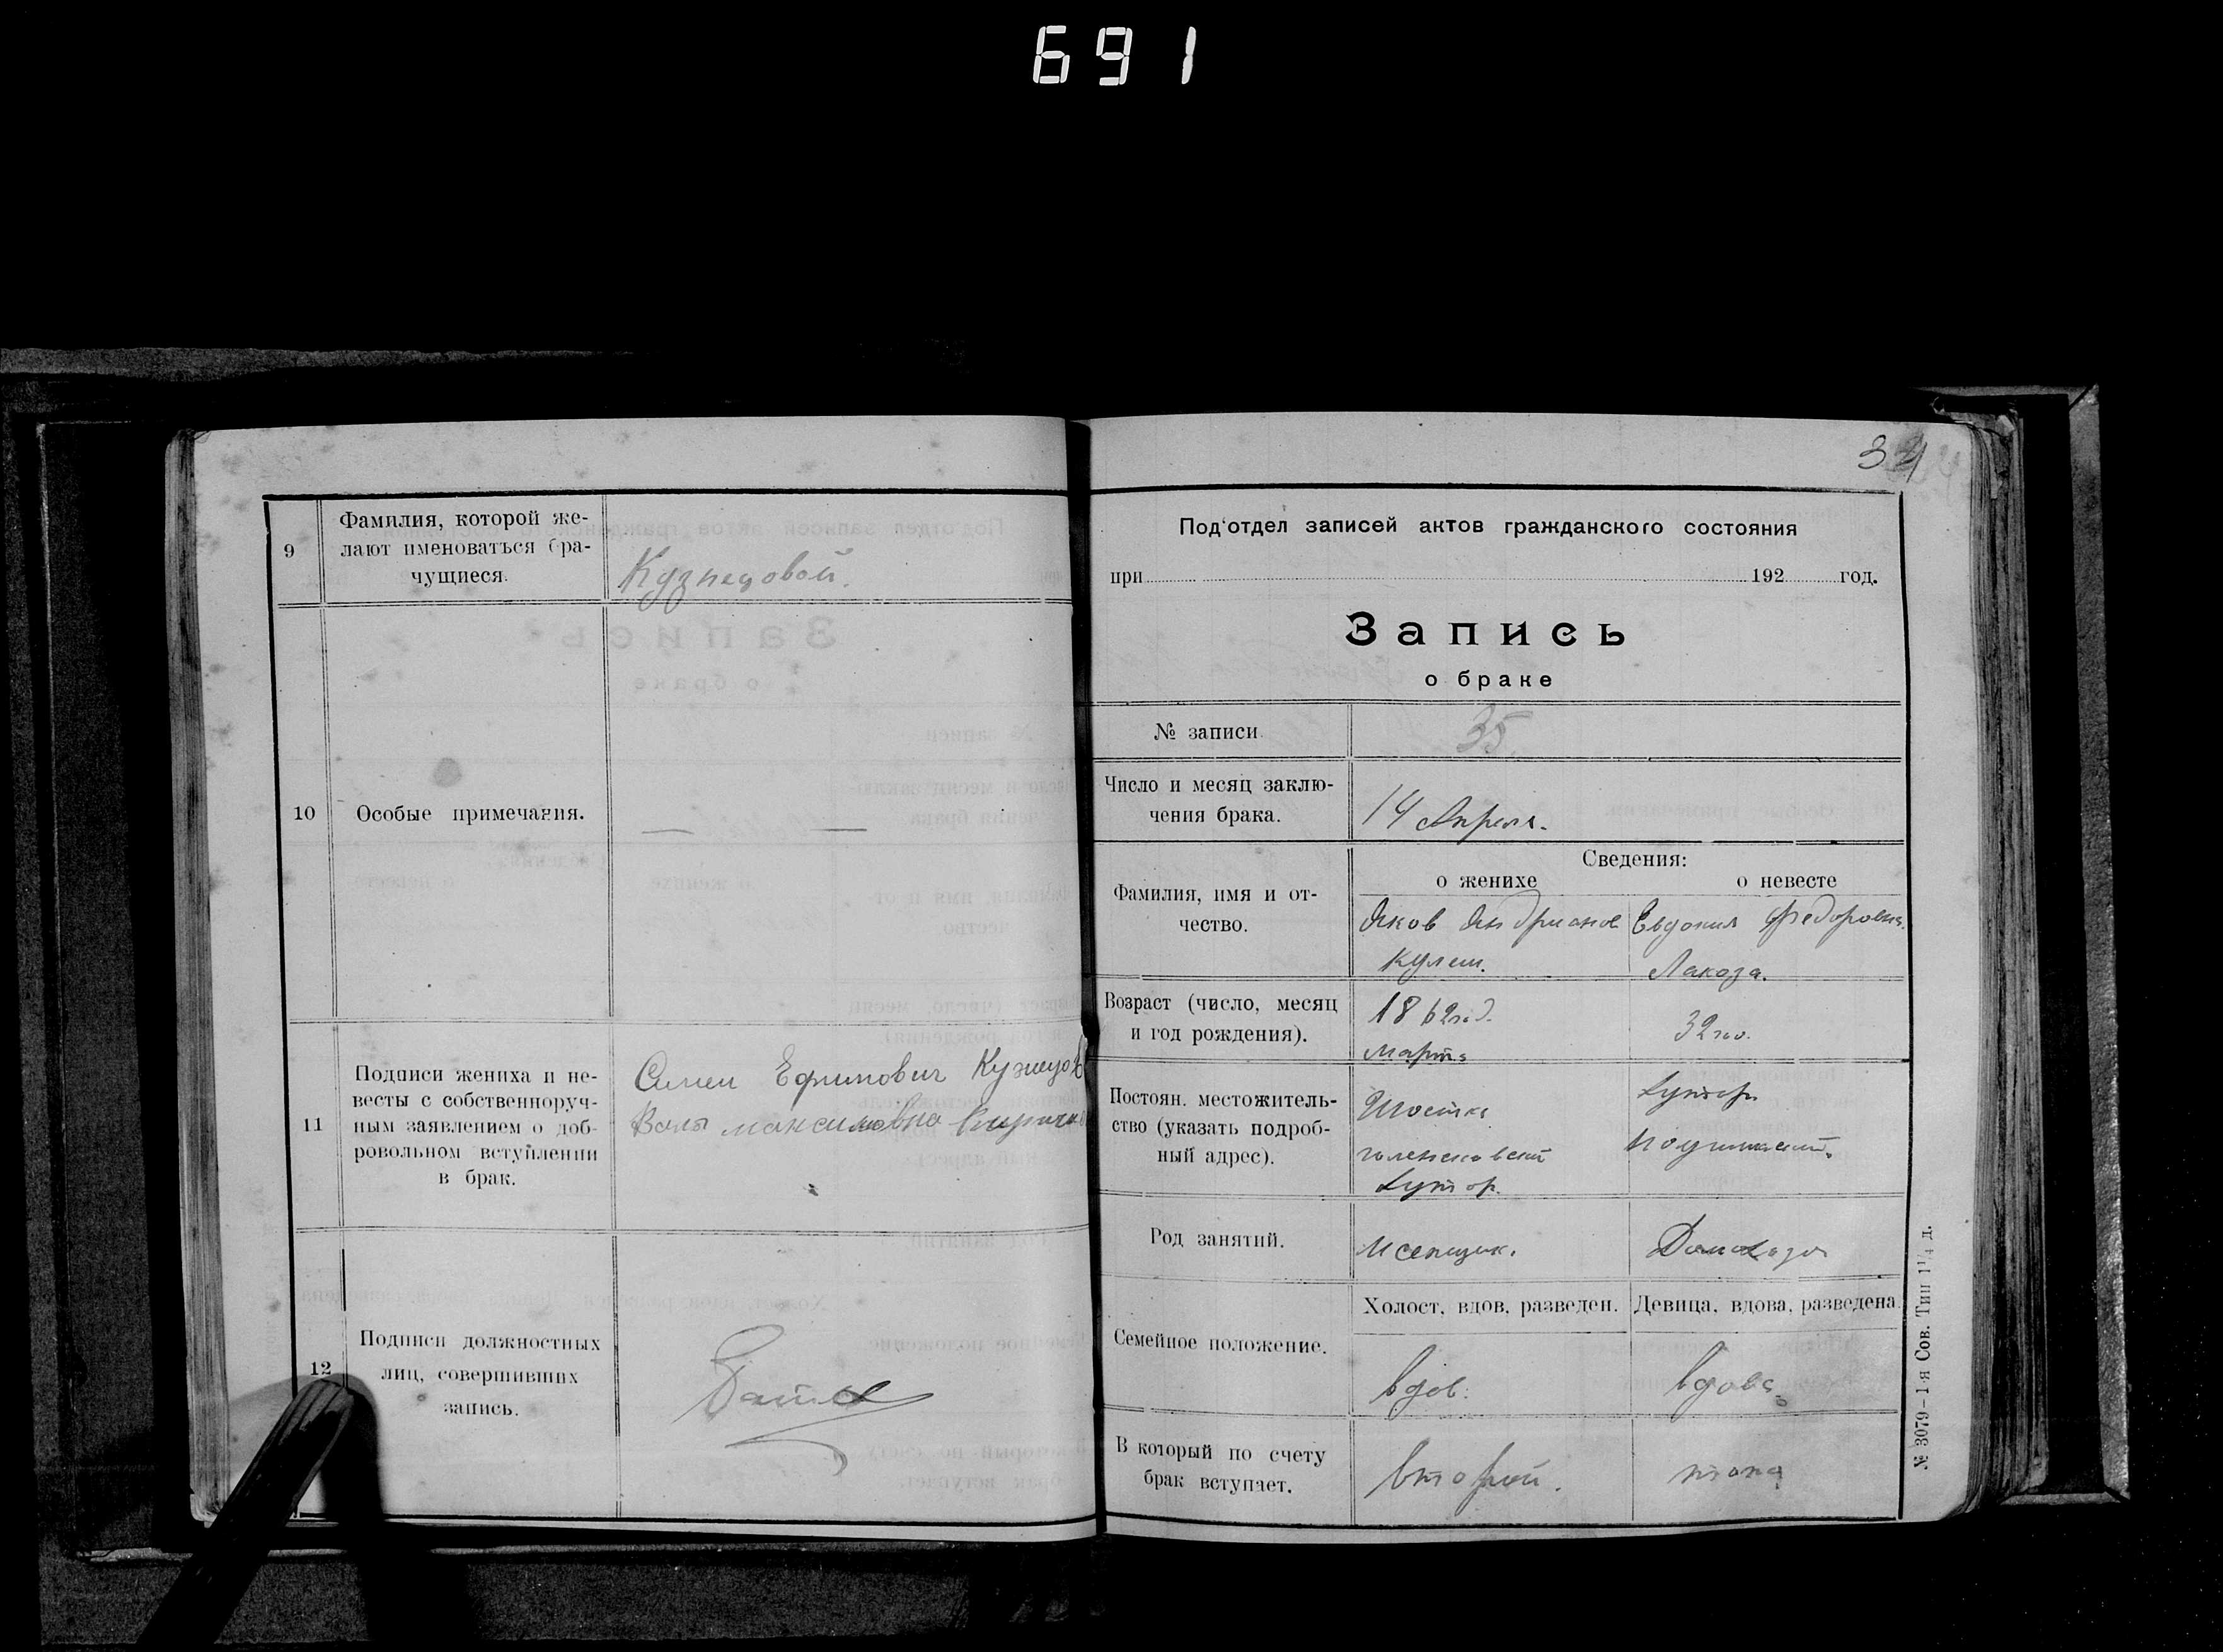 691
9
Фамилия, которой же-
лают именоваться бра-
чущиеся.
Кузнецовой.
10
Особые примечания.
11
Подписи жениха и не-
весты с собственноруч-
ным заявлением о доб-
ровольном вступлении
в брак.
Ефимович Кузнецов
Максимовна
12
Подписи должностных
лиц, совершивших
запись.
34
Под'отдел записей актов гражданского состояния
при 192 год.
Запись
о браке
№ записи
35
Число и месяц заклю-
чения брака.
14 Апреля.
Сведения:
о женихе о невесте
Фамилия, имя и от-
чество.
Яков Андрианов Евдокия Федоровна
Кулеш. Лакоза.
Возраст (число, месяц
и год рождения).
1862 год.
марта
32 го.
Постоян. местожитель-
ство (указать подроб-
ный адрес).
Шостка
хутор.
хутор
Род занятий.
Семейное положение.
Холост, вдов, разведен. Девица, вдова, разведена.
вдов. вдова
В который по счету
брак вступает.
второй.
№ 3079–1-я Сов. Тип 1¼ д.